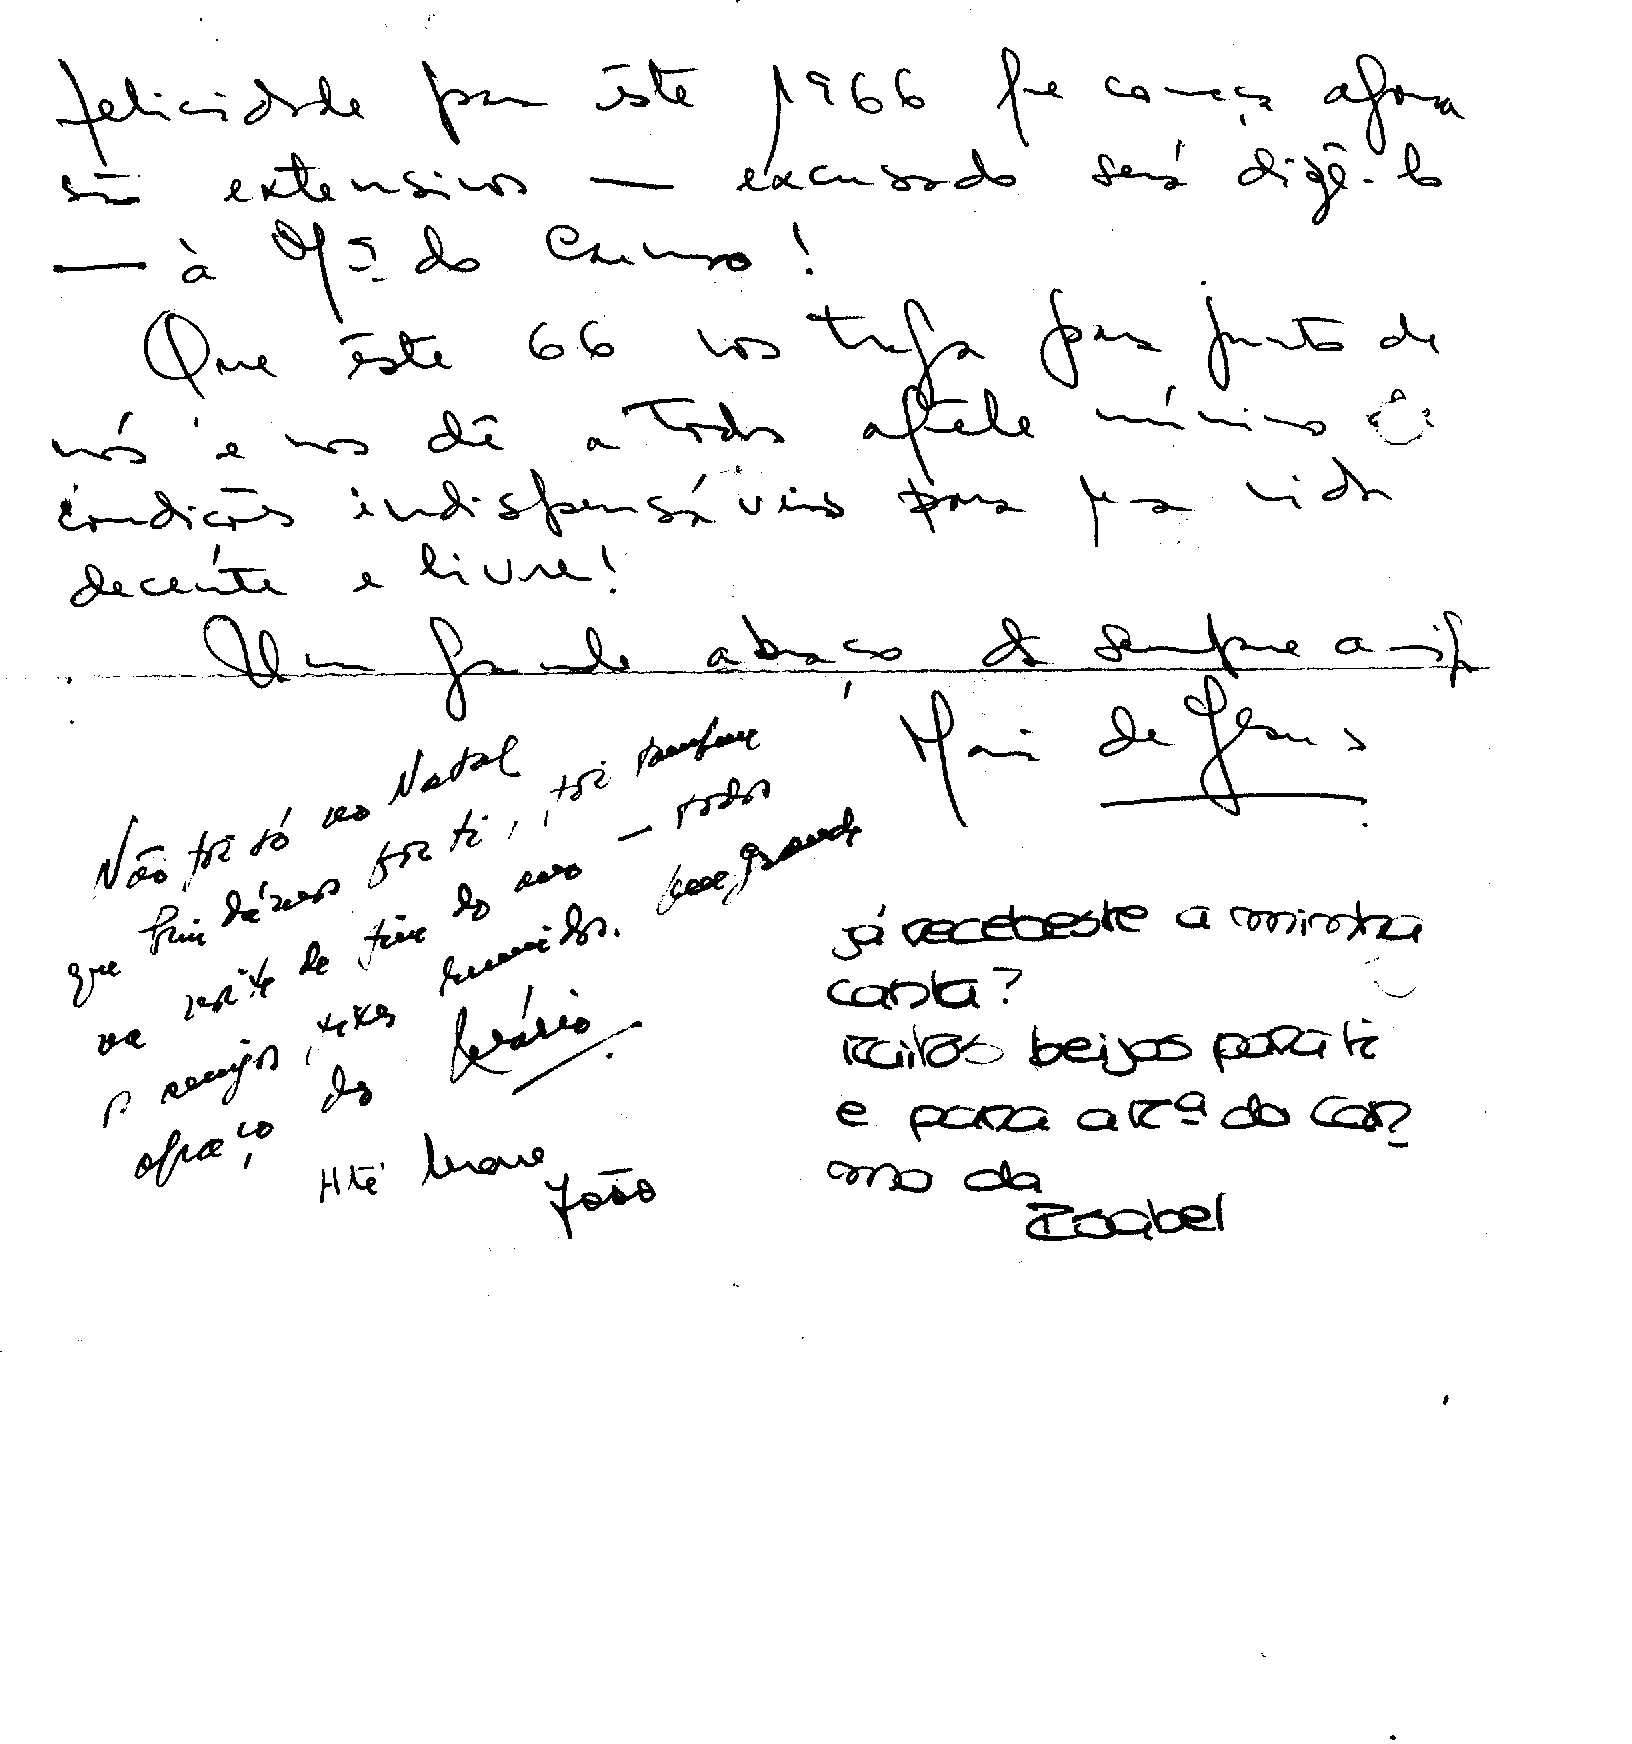 felicidade para êste 1966 que começa agora
são extensivos — excusado será dizê-lo
— à Mª do Carmo!
Que êste 66 vos traga para junto de
nós e nos dê a todos aquele mínimo de
condições indispensáveis para uma vida
decente e livre!
Um grande abraço da sempre amiga
Maria de Jesus
Não foi só no Natal
que brindámos por ti, foi também
na noite de fim do ano — todos
os amigos, reunidos. Um grande
abraço do
Até breve
João
já recebeste a minha
carta?
Muitos beijos para ti
e para a Mª do Car
mo da
Isabel